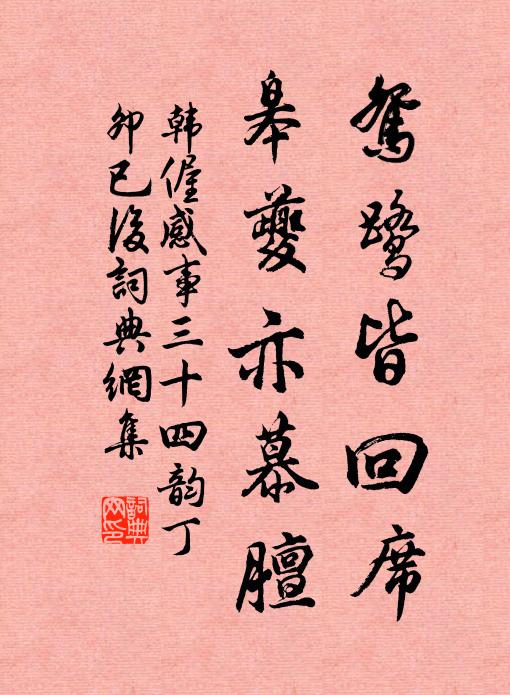 鴛鷺皆回席
皋夔亦慕膻
韩偓感事三十四韵丁
卯已後詞典網集
詞典網印